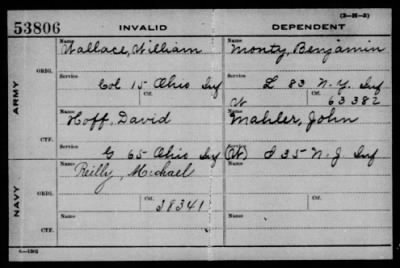 (3-H-3)
53806 INVALID DEPENDENT
ARMY
NAVY
ORIG.
CTF.
ORIG.
CTF.
Name Wallace, William
Name Monty, Benjamin
Service Col 15 Ohio Inf
Service L 83 N.Y. Inf
Ctf.
Ctf. W 63382
Name Hoff, David
Name Mahler, John
Service G 65 Ohio Inf
Service (W) I 35 N.J Inf
Name Reilly, Michael
Name
Ctf. 38341
Ctf.
Name
Name